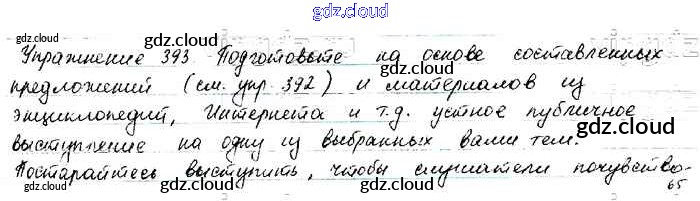 gdz.cloud
Упражнение 393. Подготовьте на основе составленных
предложений (см. упр. 392) и материалов из
энциклопедий, Интернета и т.д. устное публичное
выступление на одну из выбранных вами тем.
Постарайтесь выступить, чтобы слушатели почувство-
65
gdz.cloud
gdz.cloud
gdz.cloud
gdz.cloud
gdz.cloud
gdz.cloud
gdz.cloud
gdz.cloud